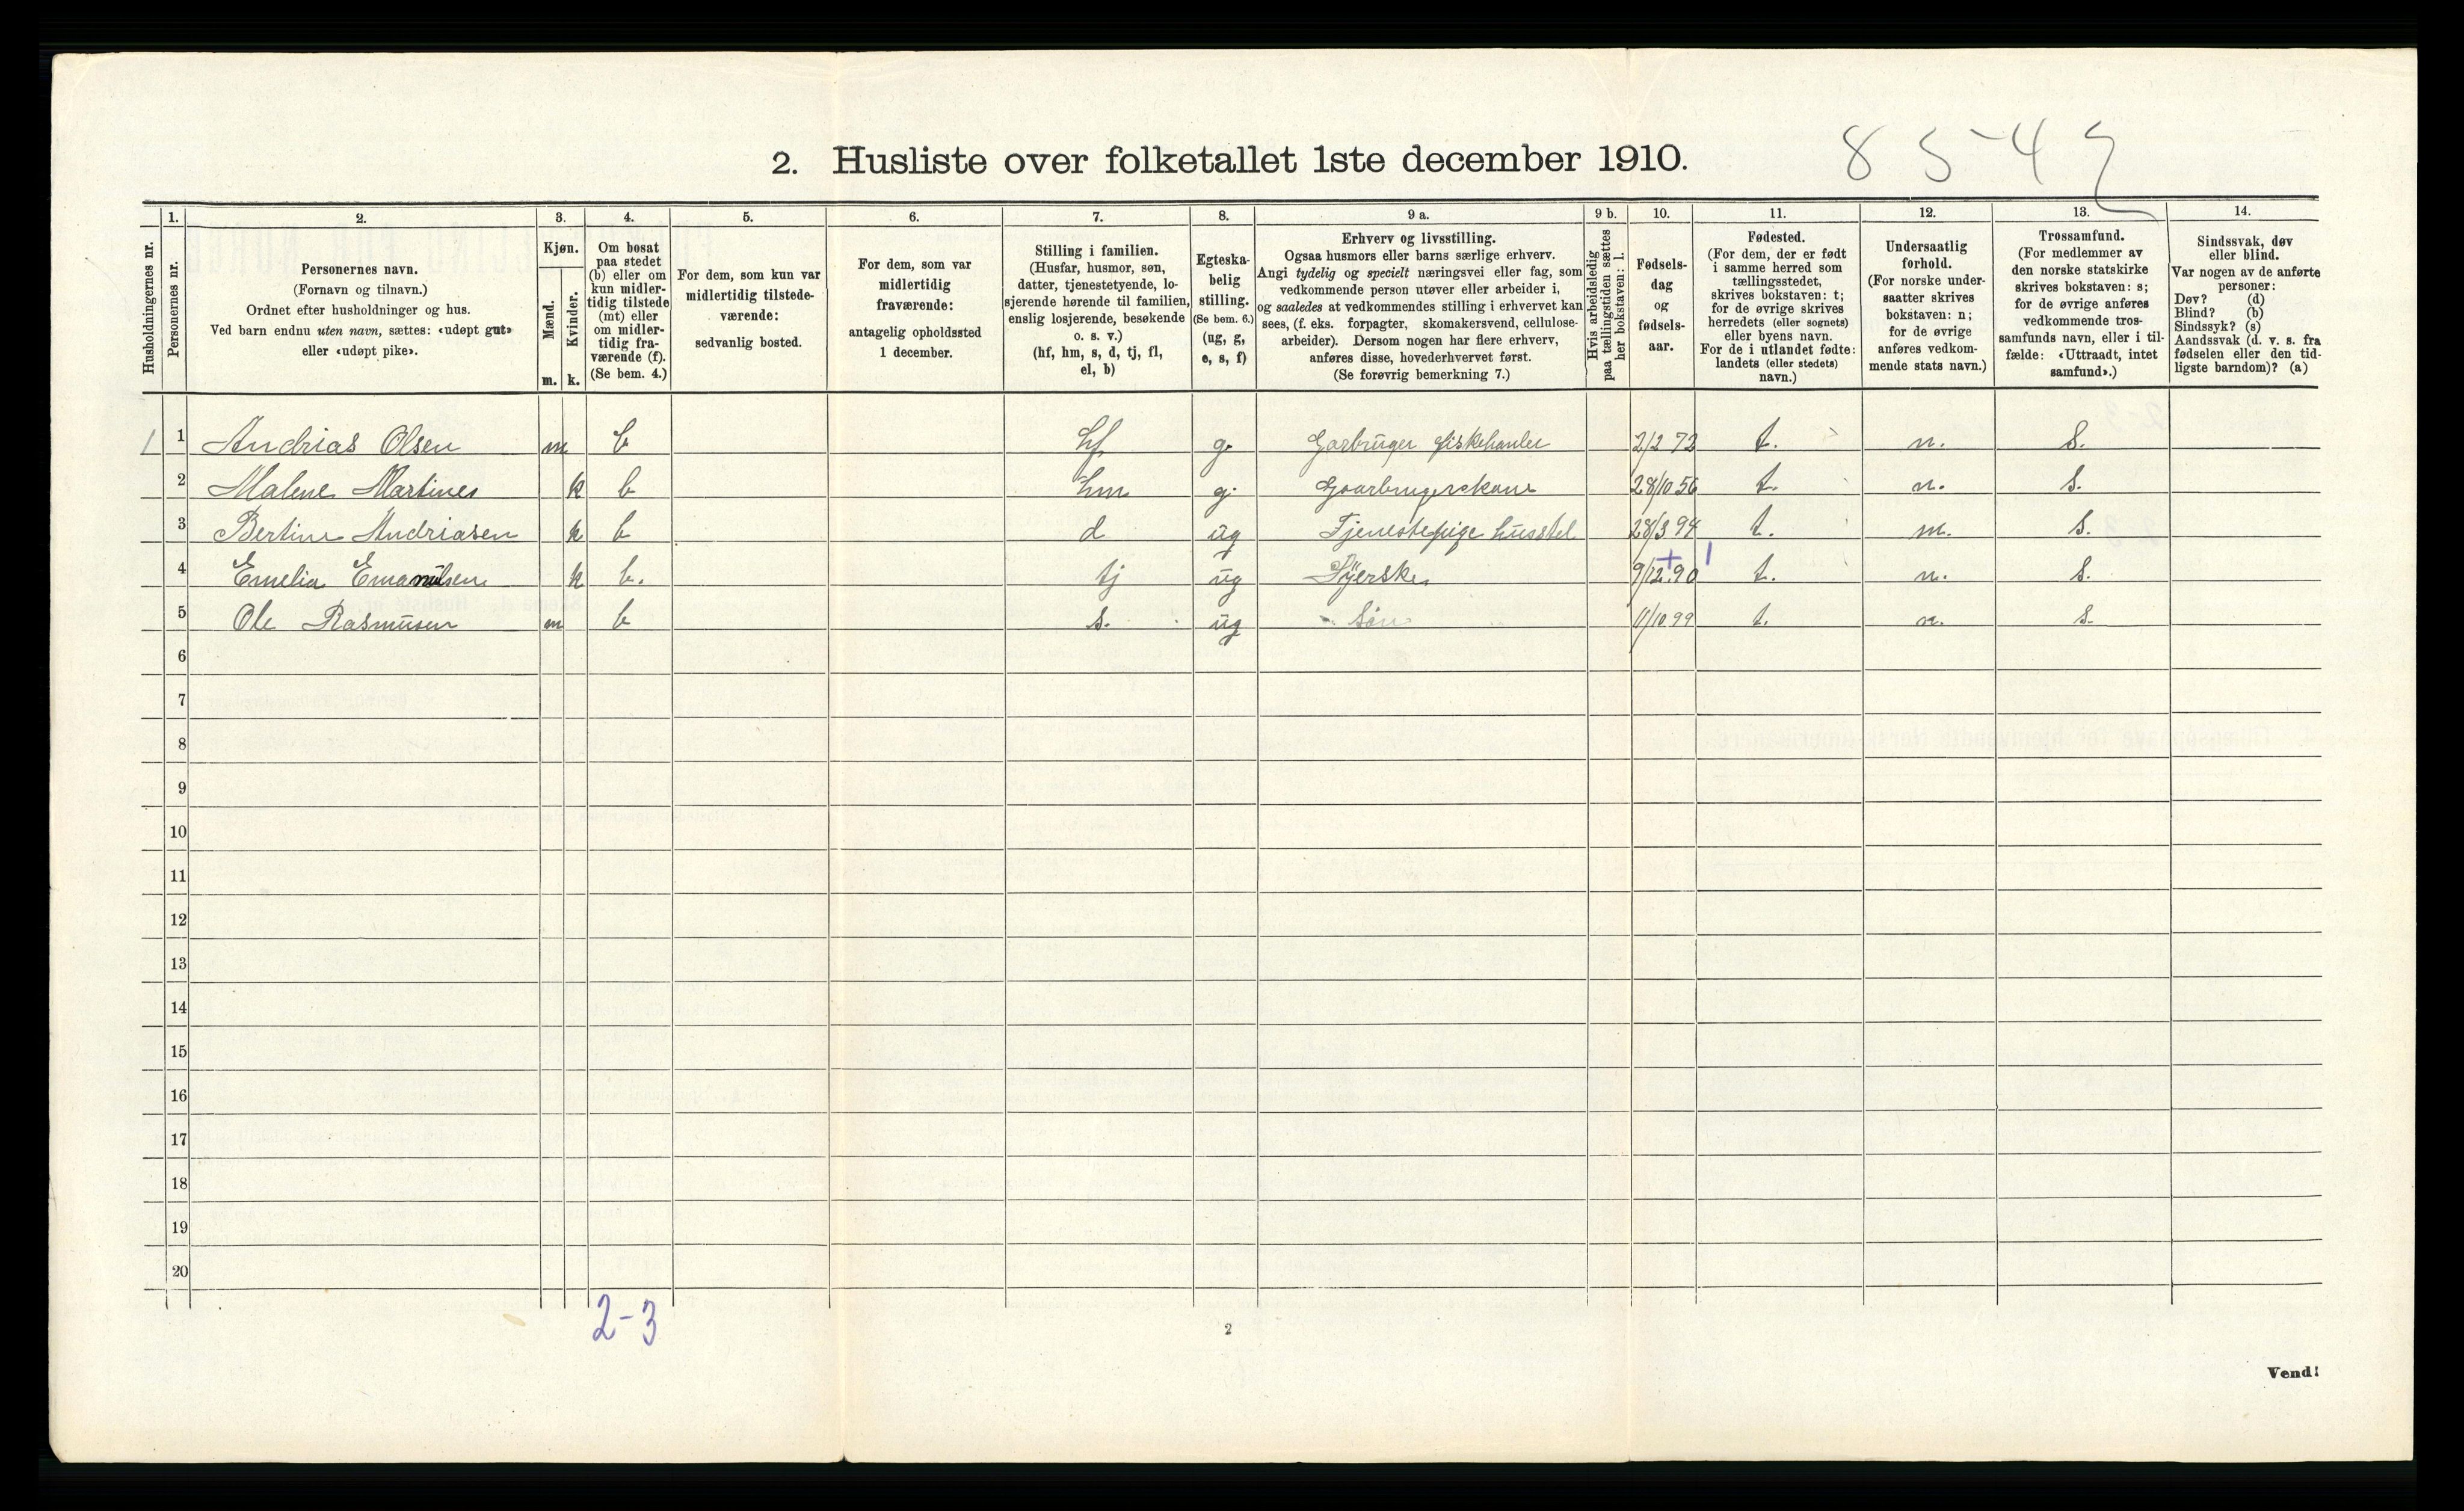 2. Husliste over folketallet 1ste december 1910.
854
1. 2. 3. 4. 5. 6. 7. 8. 9 a. 9 b. 10. 11. 12. 13. 14.
Husholdningernes nr.
Personernes nr.
Personernes navn.
(Fornavn og tilnavn.)
Ordnet efter husholdninger og hus.
Ved barn endnu uten navn, sættes: «udøpt gut»
eller «udøpt pike».
Kjøn.
Mænd.
Kvinder.
m. k.
Om bosat
paa stedet
(b) eller om
kun midler-
tidig tilstede
(mt) eller
om midler-
tidig fra-
værende (f).
(Se bem. 4.)
For dem, som kun var
midlertidig tilstede-
værende:
sedvanlig bosted.
For dem, som var
midlertidig
fraværende:
antagelig opholdssted
1 december.
Stilling i familien.
(Husfar, husmor, søn,
datter, tjenestetyende, lo-
sjerende hørende til familien,
enslig losjerende, besøkende
o. s. v.)
(hf, hm, s, d, tj, fl,
el, b)
Egteska-
belig
stilling.
(Se bem. 6.)
(ug, g,
e, s, f)
Erhverv og livsstilling.
Ogsaa husmors eller barns særlige erhverv.
Angi tydelig og specielt næringsvei eller fag, som
vedkommende person utøver eller arbeider i,
og saaledes at vedkommendes stilling i erhvervet kan
sees, (f. eks. forpagter, skomakersvend, cellulose-
arbeider). Dersom nogen har flere erhverv,
anføres disse, hovederhvervet først.
(Se forøvrig bemerkning 7.)
Hvis arbeidsledig
paa tællingstiden sættes
her bokstaven: l.
Fødsels-
dag
og
fødsels-
aar.
Fødested.
(For dem, der er født
i samme herred som
tællingsstedet,
skrives bokstaven: t;
for de øvrige skrives
herredets (eller sognets)
eller byens navn.
For de i utlandet fødte:
landets (eller stedets)
navn.)
Undersaatlig
forhold.
(For norske under-
saatter skrives
bokstaven: n;
for de øvrige
anføres vedkom-
mende stats navn.)
Trossamfund.
(For medlemmer av
den norske statskirke
skrives bokstaven: s;
for de øvrige anføres
vedkommende tros-
samfunds navn, eller i til-
fælde: «Uttraadt, intet
samfund».)
Sindssvak, døv
eller blind.
Var nogen av de anførte
personer:
Døv? (d)
Blind? (b)
Sindssyk? (s)
Aandssvak (d. v. s. fra
fødselen eller den tid-
ligste barndom)? (a)
1 1 Andrias Olsen m b hf g. Garbruger fiskehanler 2/2 72 t. n. S.
2 Malene Martines k b hm g. Gaarbrugerskone 28/10 56 t. n. S.
3 Bertine Andriasen k b d ug Tjenestepige husstel 28/3 94 t. n. S.
4 Emelia Emanulsen k b. tj ug Syerske 9/12 90 t. n. S.
5 Ole Rasmusen m b s. ug Søn 11/10 99 t. n. S.
6
7
8
9
10
11
12
13
14
15
16
17
18
19
20
2-3
2
Vend!